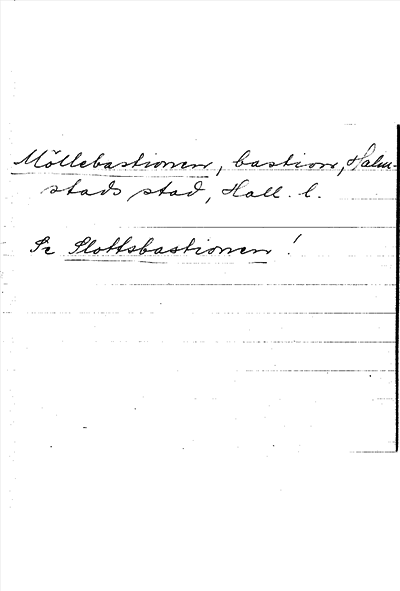 Möllebastionen, bastion, Halm-
stads stad, Hall. l.
Se Slottsbastionen!